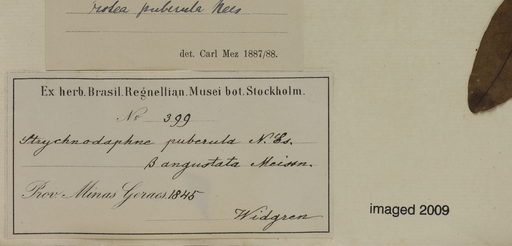 puberula Nees
det. Carl Mez 1887/88.
Ex herb. Brasil. Regnellian. Musei bot. Stockholm.
No 399
Strychnodaphne puberula N. Es.
B angustata Meissn.
Prov. Minas Geraes, 1845
Widgren
imaged 2009